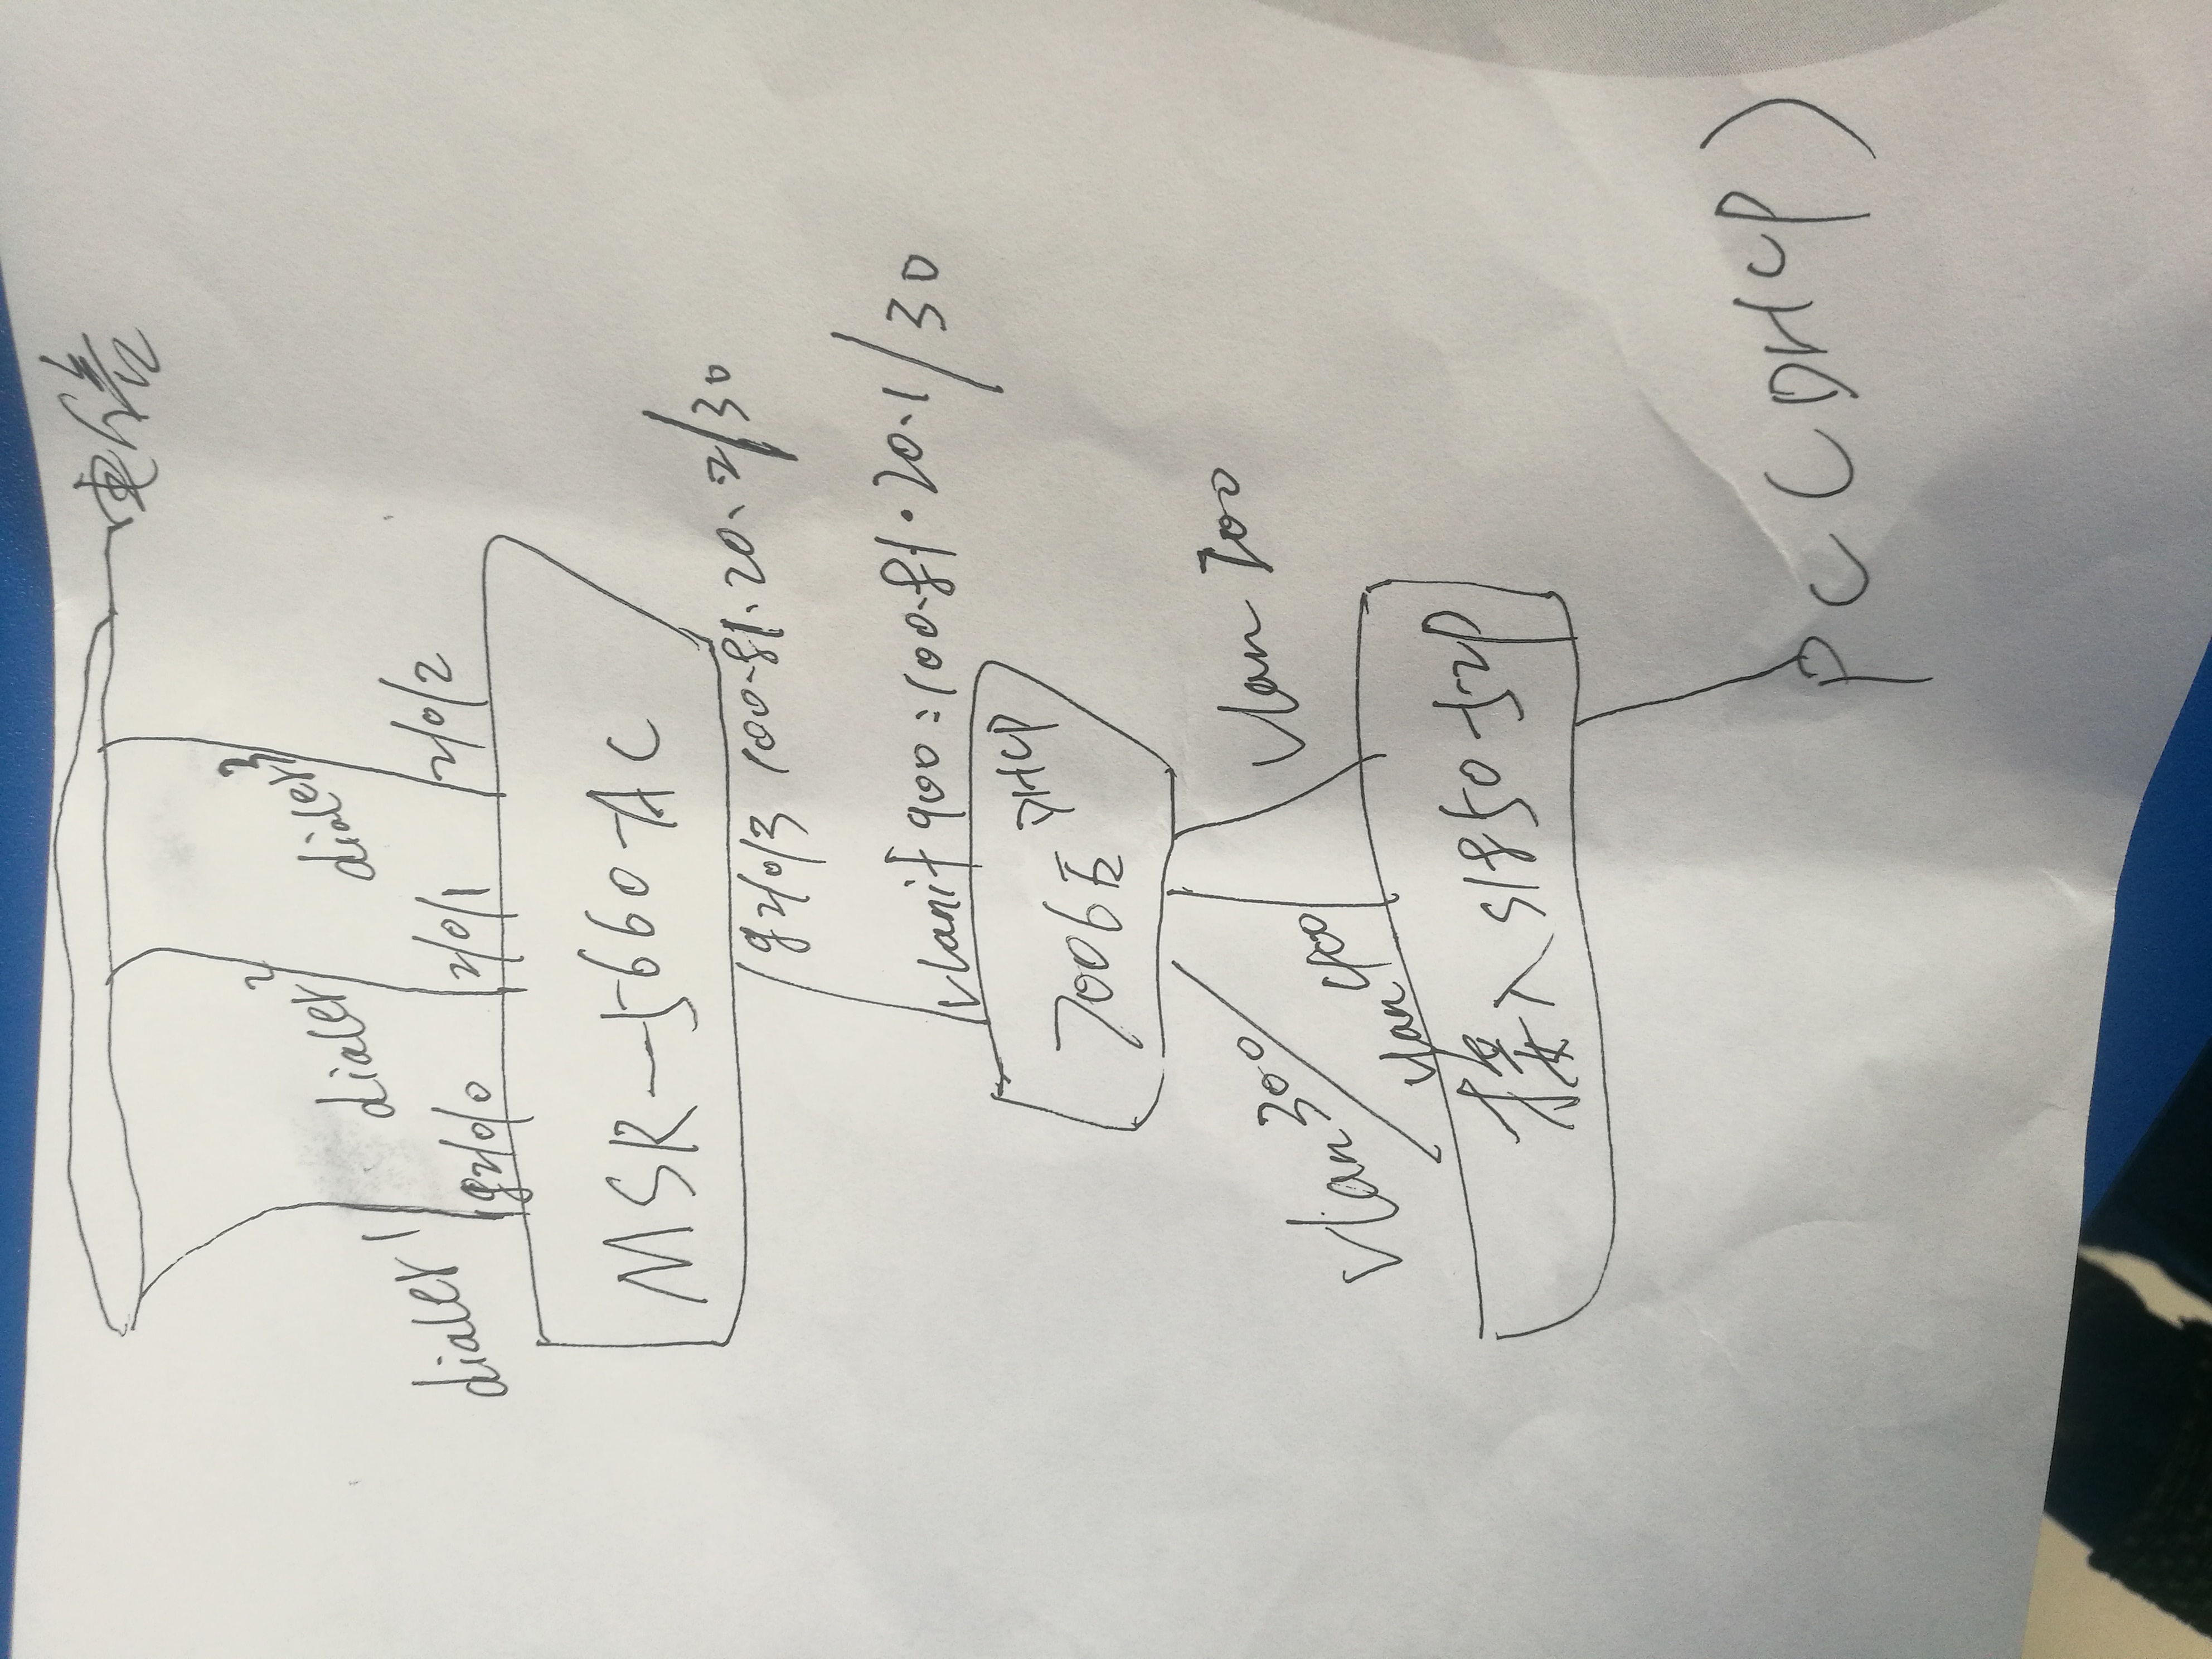 电信
dialer1
dialer2
dialer3
g2/0/0
2/0/1
2/0/2
MSR-5660-AC
g2/0/3 100.81.20.2/30
vlanif900:100.81.20.1/30
DHCP
7006
vlan300
vlan400
vlan 700
接入 S1850-52P
PC(DHCP)